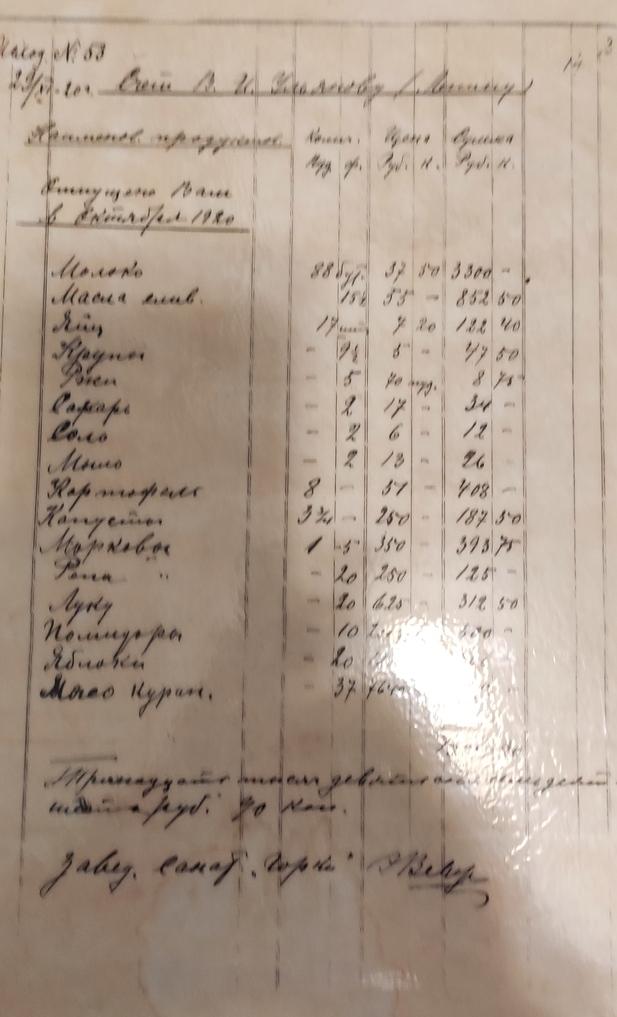 № 53
Счет В. И. Ульянову (Ленину)
Наименов. продуктов. Колич. Цена Сумма
Пуд. ф. Руб. к. Руб. к.
Отпущено Вам
в Октября 1920
Молоко 88 бут. 37 50 3300 –
Масла слив. 15½ 55 – 852 50
Яиц 17 шт. 7 20 122 40
Крупы – 9½ 5 – 47 50
Ржи – 5 70 пуд. 8 75
Сахарь – 2 17 – 34 –
Соло – 2 6 – 12 –
Мыло – 2 13 – 26 –
Картофель 8 – 51 – 408 –
Капусты 3¾ – 250 – 187 50
Морковы 1 5 350 – 393 75
Репа " – 20 250 – 125 –
Луку – 20 625 – 312 50
Помидоры – 10
Яблоки – 20
Мясо Куран. – 37
Тринадцать тысяч девятьсот
руб. 90 коп.
Завед. Санат. „Горки"